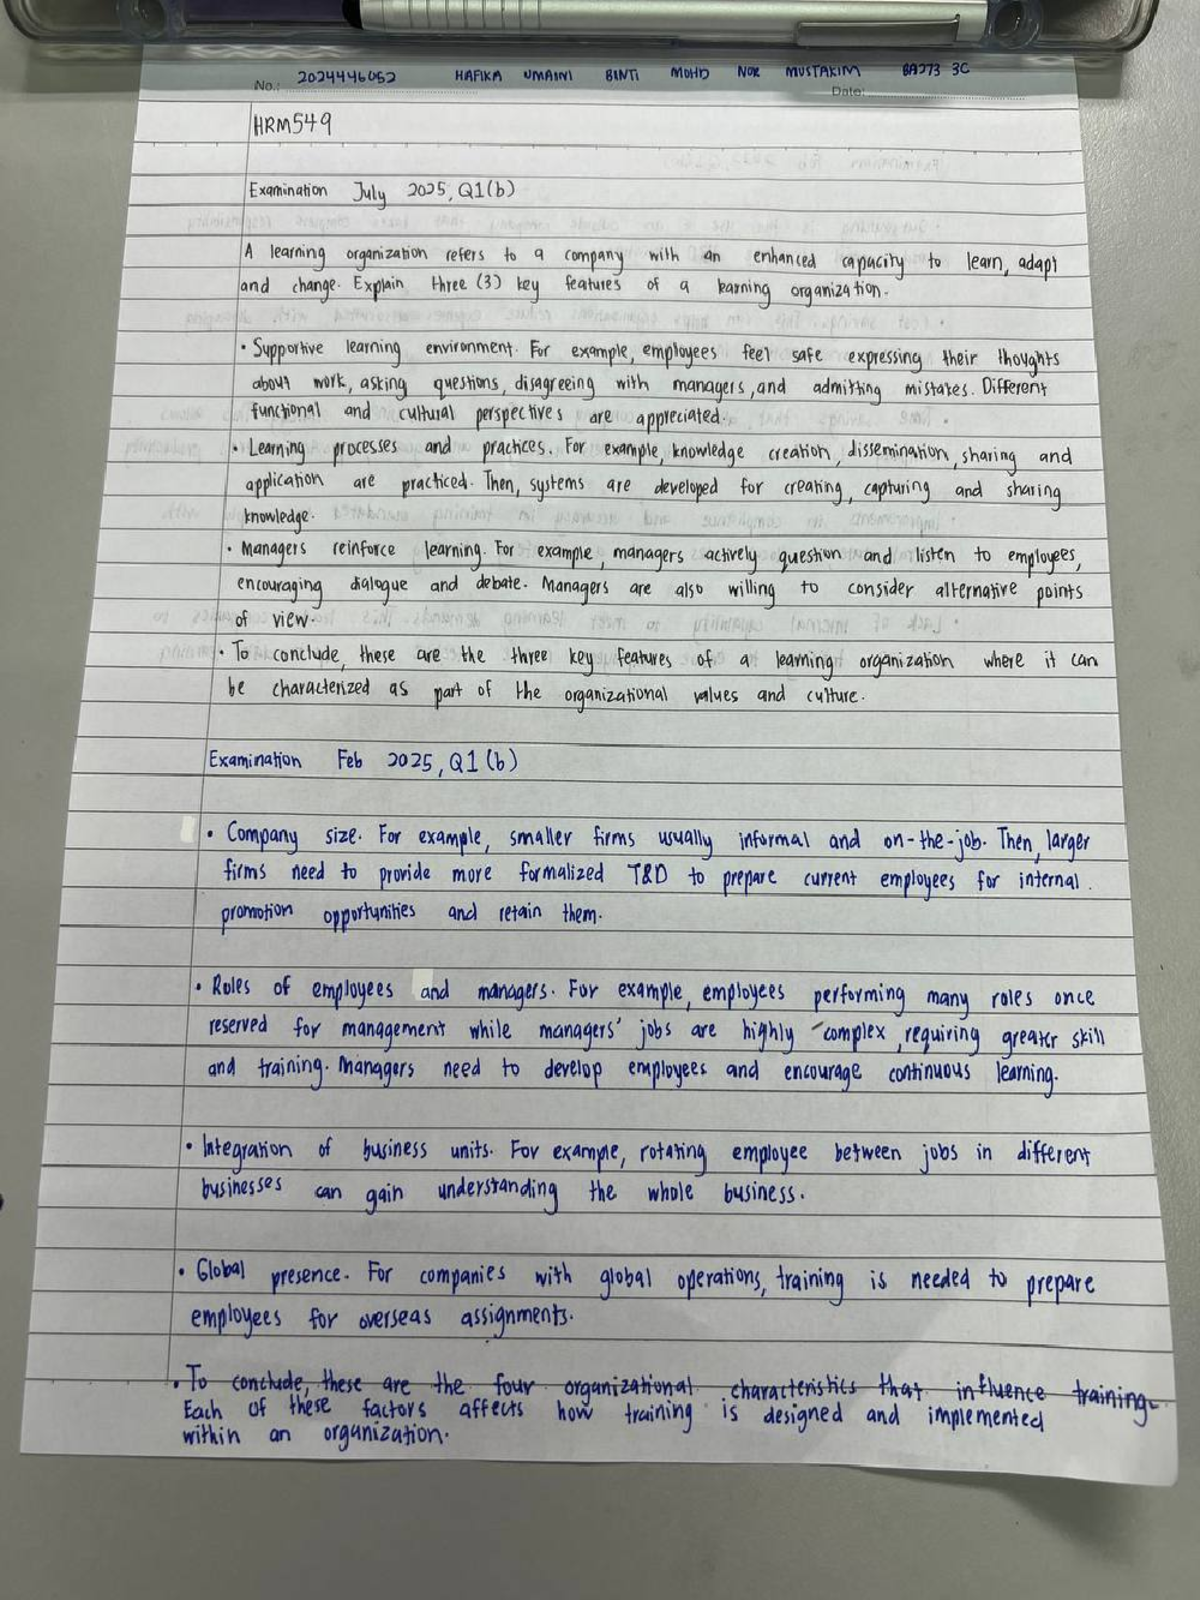 No.: 2024446052 HAFIKA UMAINI BINTI MOHD NOR MUSTAKIM BA273 3C
Date:
HRM549
Examination July 2025, Q1(b)
A learning organization refers to a company with an enhanced capacity to learn, adapt
and change. Explain three (3) key features of a learning organization.
• Supportive learning environment. For example, employees feel safe expressing their thoughts
about work, asking questions, disagreeing with managers, and admitting mistakes. Different
functional and cultural perspectives are appreciated.
• Learning processes and practices. For example, knowledge creation, dissemination, sharing and
application are practiced. Then, systems are developed for creating, capturing and sharing
knowledge.
• Managers reinforce learning. For example, managers actively question and listen to employees,
encouraging dialogue and debate. Managers are also willing to consider alternative points
of view.
• To conclude, these are the three key features of a learning organization where it can
be characterized as part of the organizational values and culture.
Examination Feb 2025, Q1(b)
• Company size. For example, smaller firms usually informal and on-the-job. Then, larger
firms need to provide more formalized T&D to prepare current employees for internal
promotion opportunities and retain them.
• Roles of employees and managers. For example, employees performing many roles once
reserved for management while managers' jobs are highly complex, requiring greater skill
and training. Managers need to develop employees and encourage continuous learning.
• Integration of business units. For example, rotating employee between jobs in different
businesses can gain understanding the whole business.
• Global presence. For companies with global operations, training is needed to prepare
employees for overseas assignments.
• To conclude, these are the four organizational characteristics that influence training.
Each of these factors affects how training is designed and implemented
within an organization.